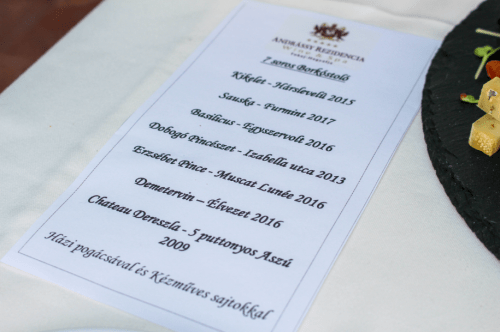 ANDRÁSSY REZIDENCIA
Wine & Spa
7 soros Borkóstoló
Kikelet - Hárslevelű 2015
Sauska - Furmint 2017
Basilicus - Egyszervolt 2016
Dobogó Pincészet - Izabella utca 2013
Erzsébet Pince - Muscat Lunée 2016
Demetervin – Élvezet 2016
Chateau Dereszla - 5 puttonyos Aszú
2009
Házi pogácsával és Kézműves sajtokkal